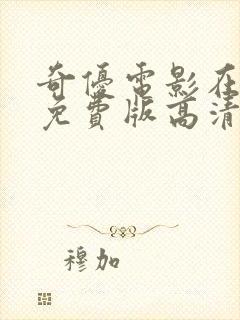 奇優電影在
免費版高清
穆加